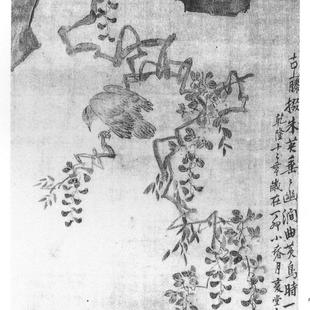 古藤掇朱英垂垂幽澗曲黃鳥時一
乾隆十二年歲在丁卯小春月